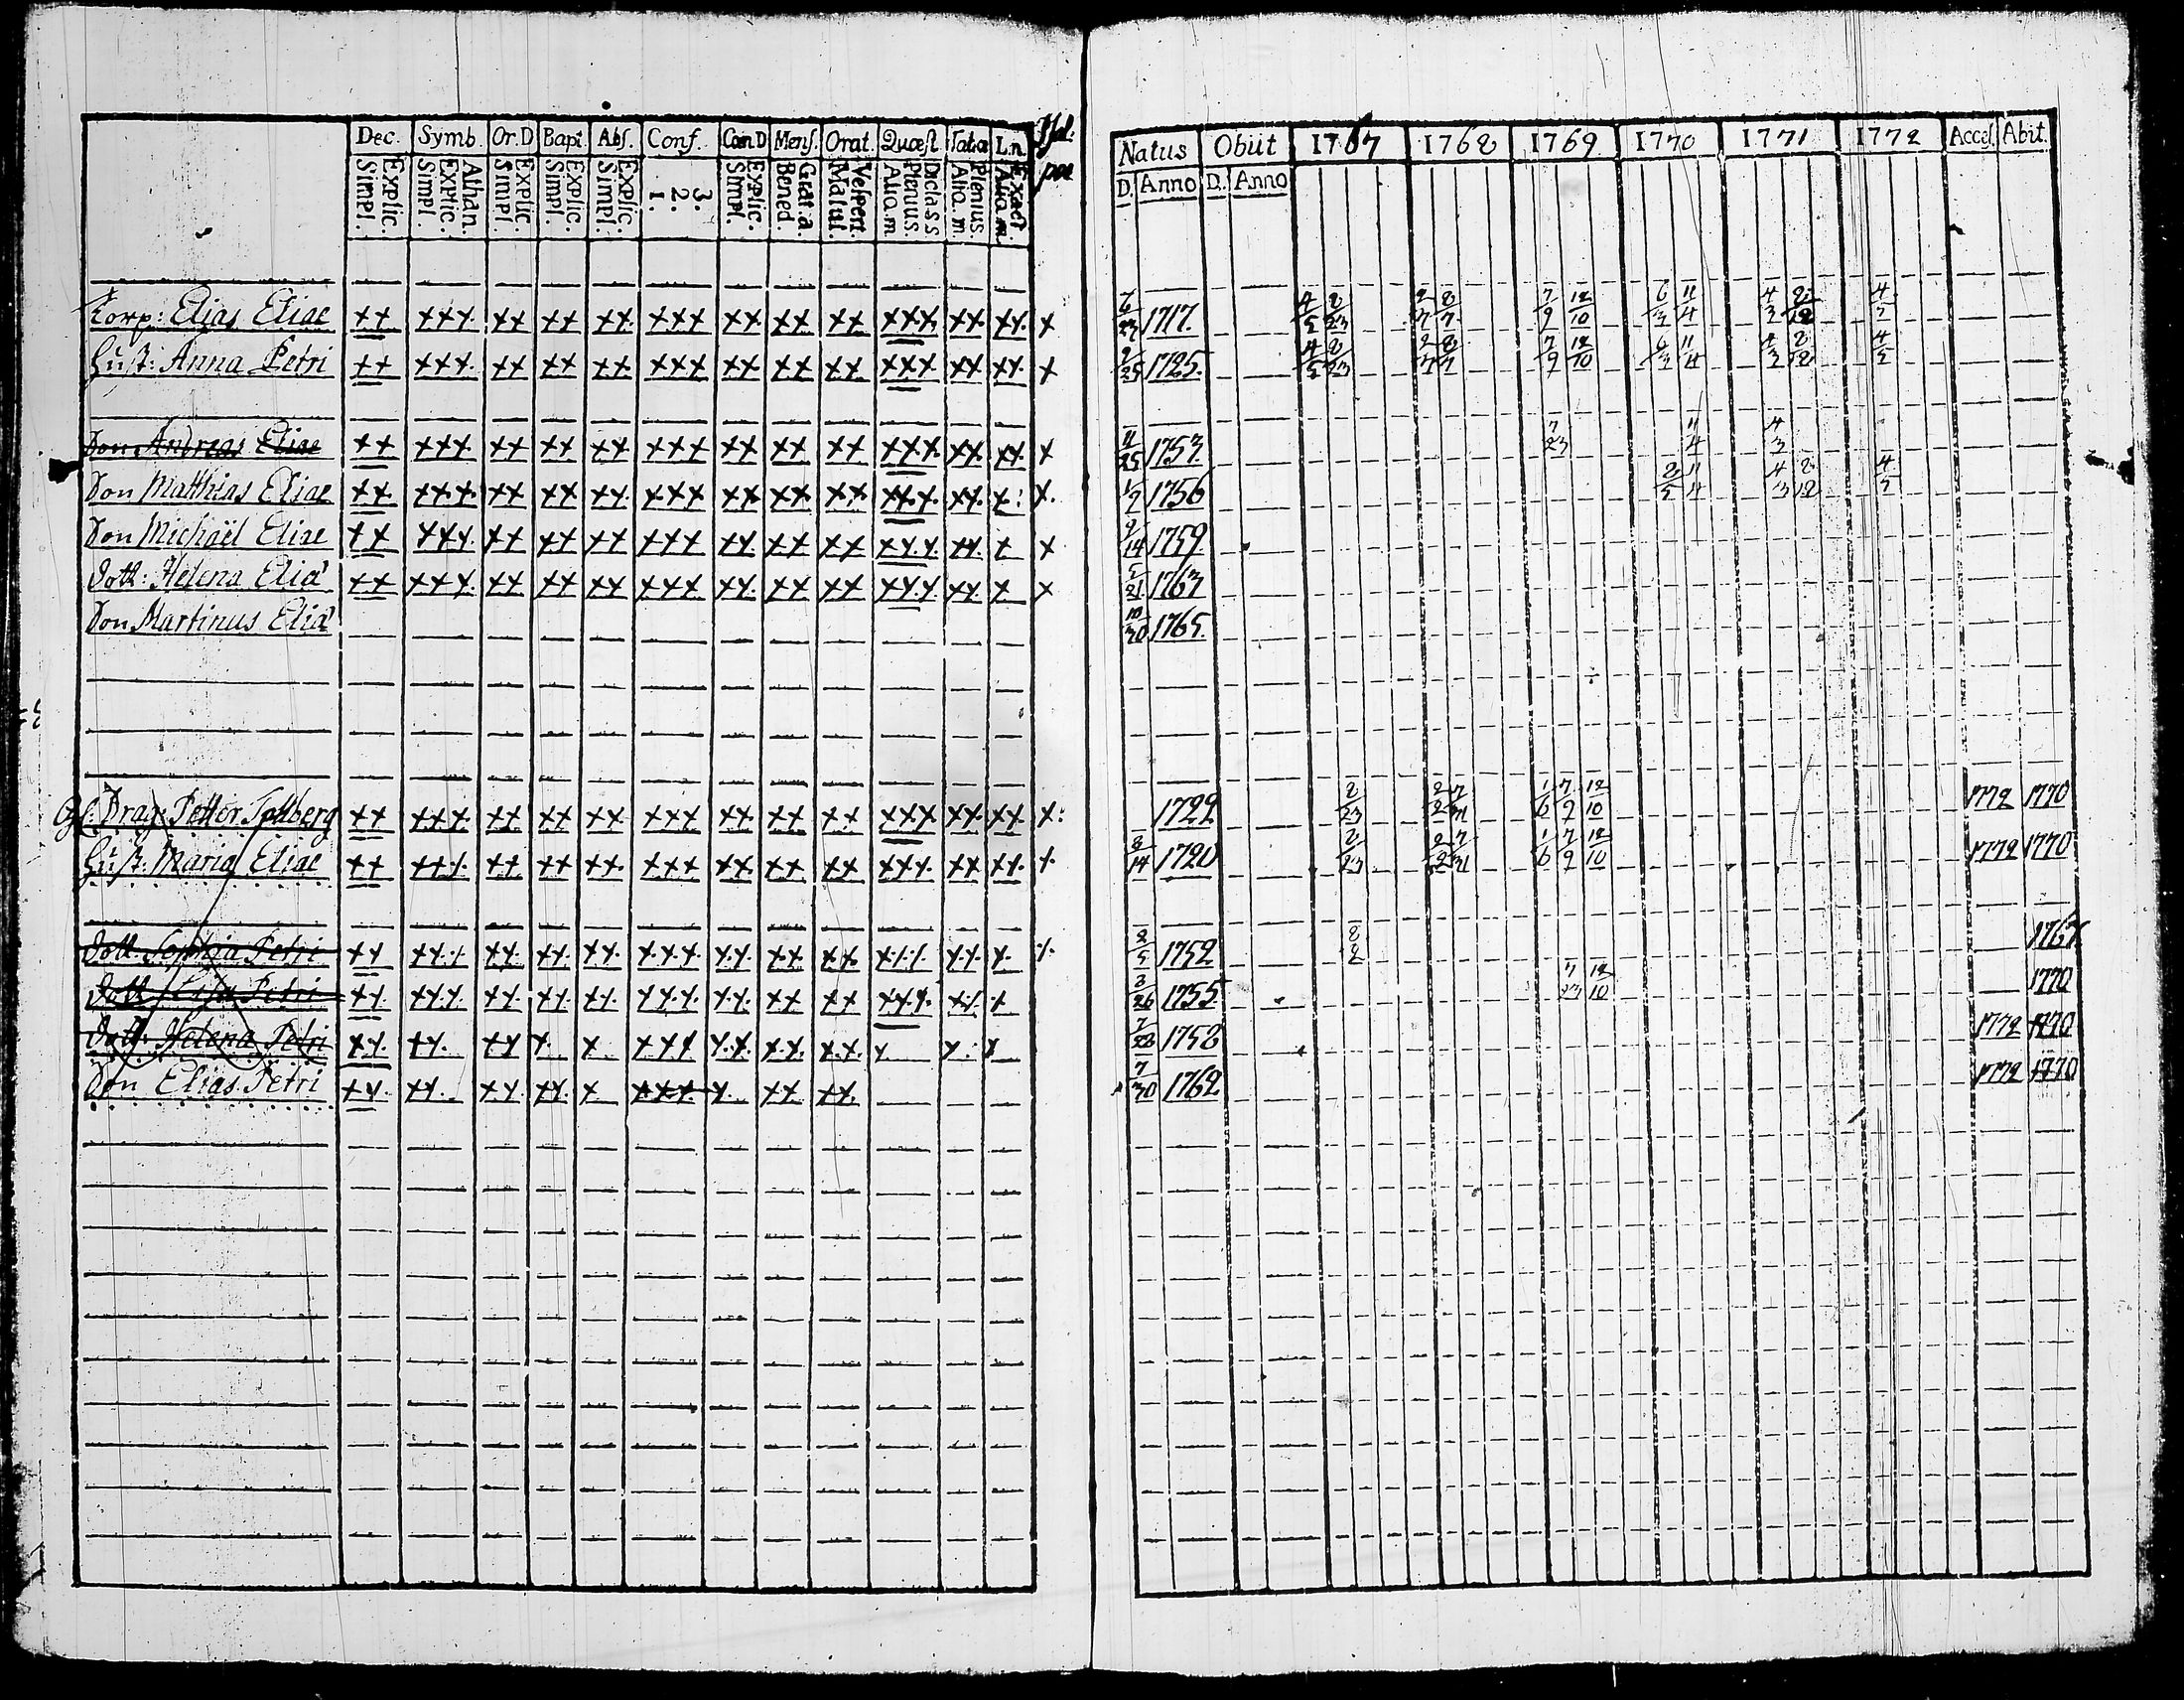 Dec. Symb. Or.D Bapt. Abs. Conf. Cœn D Mens. Orat. Quæst. L.n. Natus Obiit 1767 1768 1769 1770 1771 1772 Accef. Abit.
Explic. Simpl. Athan. Explic. Simpl. Explic. Simpl. Explic. Simpl. Explic. Simpl. 3. 2. 1. Explic. Simpl. Grat. a. Bened. Vespert. Matut. Plenius. Aliq. m Plenius. Aliq. m. Exact. Aliq. m D. Anno D. Anno
Korp: Elias Eliae ++ +++ ++ ++ ++ +++ ++ ++ ++ +++ ++ ++ + 6/23 1717. 4/5 8/23 2/7 8/7 7/9 12/10 6/3 11/4 4/3 8/12 4/5
Hust: Anna Petri ++ +++ ++ ++ ++ +++ ++ ++ ++ +++ ++ ++ + 2/25 1725. 4/5 8/23 2/7 8/7 7/9 12/10 6/3 11/4 4/3 8/12 4/5
Son Andreas Eliae ++ +++ ++ ++ ++ +++ ++ ++ ++ +++ ++ ++ + 11/25 1753 7/23 11/4 4/3
Son Matthias Eliae ++ +++ ++ ++ ++ +++ ++ ++ ++ +++ ++ + + 1/7 1756 8/5 11/4 4/3 8/12 4/5
Son Michaël Eliae ++ +++ ++ ++ ++ +++ ++ ++ ++ +++ ++ + + 9/14 1759
Dott: Helena Eliæ ++ +++ ++ ++ ++ +++ ++ ++ ++ +++ ++ + + 5/21 1763
Son Martinus Eliæ 10/30 1765.
Drag: Petter ++ +++ ++ ++ ++ +++ ++ ++ ++ +++ ++ ++ + 1722 8/23 1/6 7/9 12/10 1772 1770
Hust: Maria Eliae ++ +++ ++ ++ ++ +++ ++ ++ ++ +++ ++ ++ + 8/14 1720 8/23 1/6 7/9 12/10 1772 1770
Dott: Sophia Petri ++ +++ ++ ++ ++ +++ ++ ++ ++ +++ ++ + + 2/5 1752 8/2 1767
Dott: Lisa Petri ++ +++ ++ ++ ++ +++ ++ ++ ++ +++ ++ + 3/26 1755 7/23 12/10 1770
Dott: Helena Petri ++ ++ ++ + + +++ ++ ++ ++ + + + 1758 1772 1770
Son Elias Petri ++ ++ ++ ++ + +++ + ++ ++ 7/30 1762 1772 1770